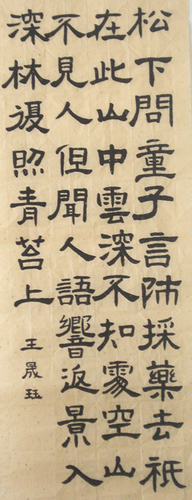 松下問童子言師採藥去祇
在此山中雲深不知處空山
不見人但聞人語響返景入
深林復照青苔上
王晟珏